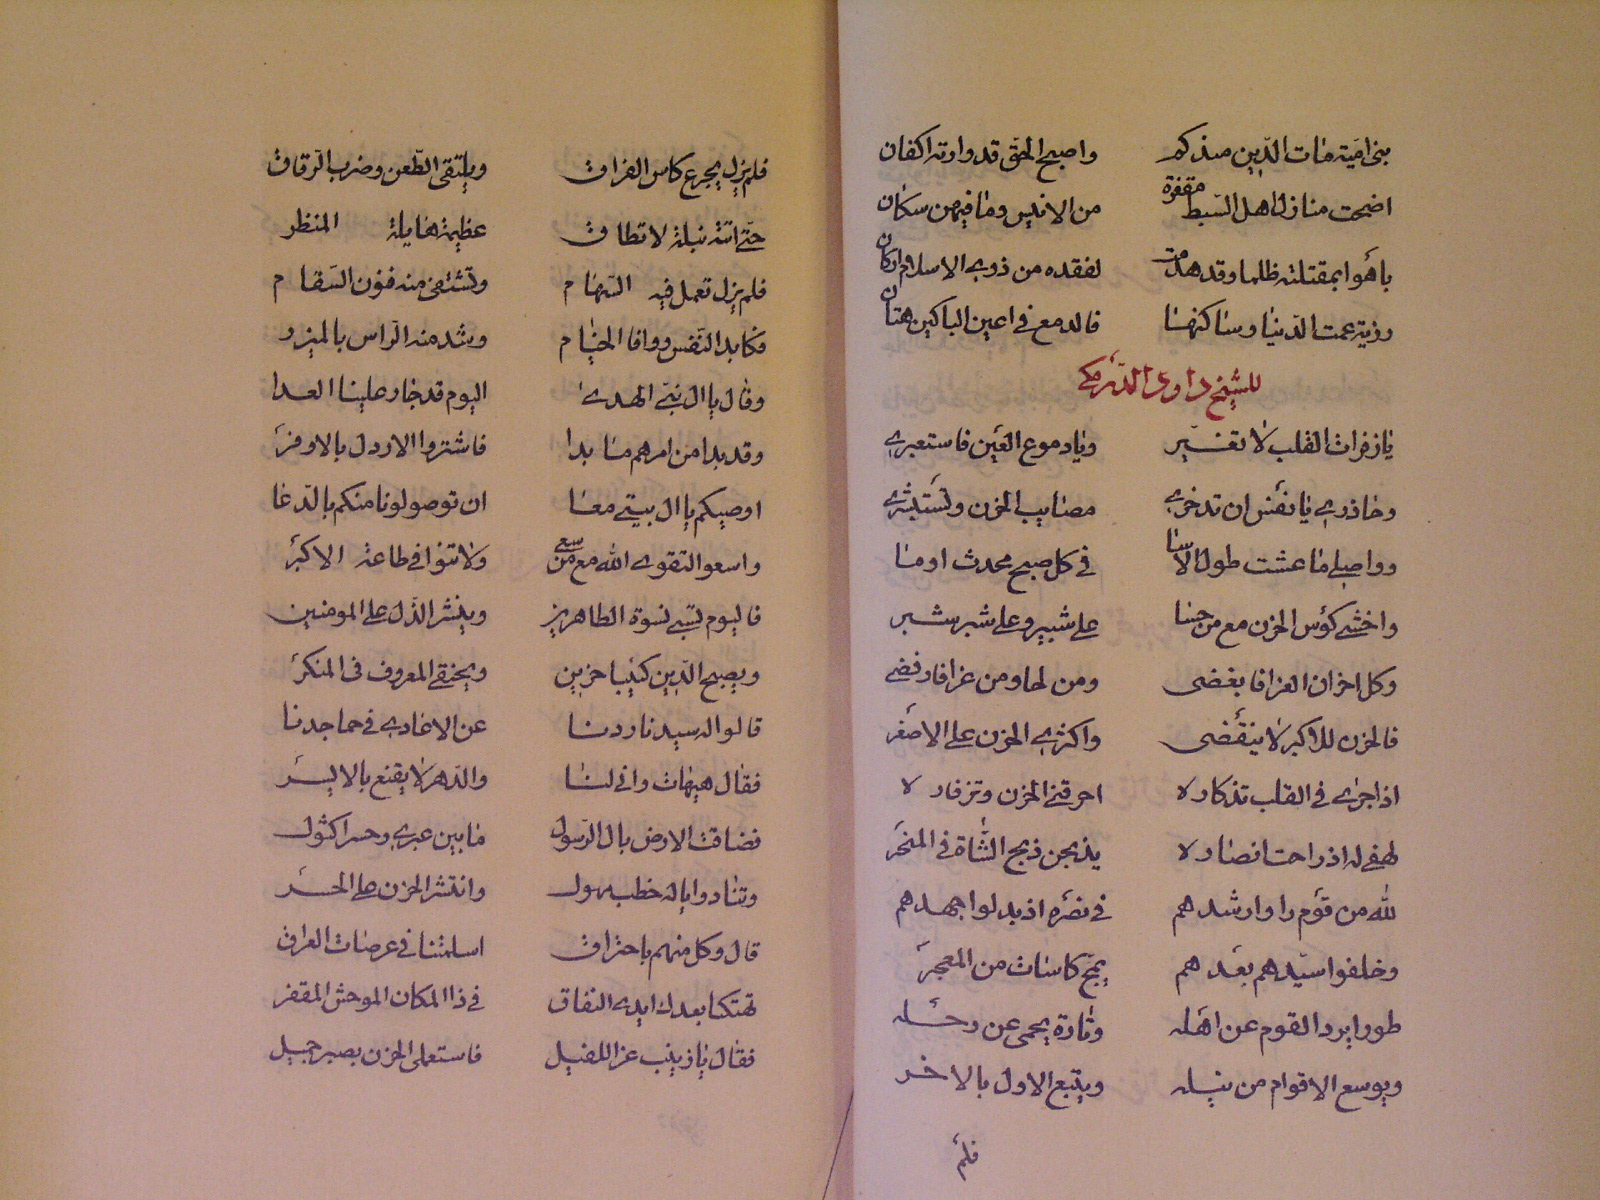 بنى امية مات الدين منذكم واصبح الحق قد وارته اكفان
اضحت منازل اهل السبط مقفرة من الانيس وما فيهن سكان
باؤا بمقتله ظلما وقد هدمت لفقده من ذوى الاسلام اركان
رزية عمت الدنيا وساكنها فالدمع فى اعين الباكين هتان
للشيخ
يا زفرات القلب لا تفترى ويا دموع العين فاستعبرى
وحاذرى يا نفس ان تدخرى مصايب الحزن وتستبشرى
وواصلى ما عشت طول الاسا فى كل صبح محدث او مسا
كؤس الحزن مع من حسا على شبير وعلى شبر
وكل احزان العزا فا بغضى ومن لها ومن عزا فارفضى
فالحزن للاكبر لا ينقضى واكثرى الحزن على الاصغر
اذا جرى فى القلب تذكاره احرقنى الحزن وتزفاره
لهفى له اذ راحت انصاره يذبحن ذبح الشاة فى المنحر
لله من قوم راوا رشدهم فى نصره اذ بدلوا جهدهم
وخلفوا سيدهم بعدهم يمج كاسات من
طورا يرد القوم عن اهله وتارة يحمى عن رحله
ويوسع الاقوام من نبله ويتبع الاول بالاخر
فلم
فلم يزل يجرع كاس الفراق ويلتقى الطعن وضرب الرقاق
حتى اتته نبلة لا تطاق عظيمة هايلة المنظر
فلم يزل تعمل فيه السهام وتشتفى منه السقام
فكابد النفس ووافا الخيام وشد منه الراس بالميزر
وقال يا ال نبى الهدى اليوم قد جار علينا العدا
وقد بدا من امرهم ما بدا فاشتروا الاردل بالاوفر
اوصيكم يا ال بيتى معا ان توصلونا منكم بالدعا
واسعوا لتقوى الله مع من سعى ولا تنوا فى طاعة الاكبر
فاليوم تسبى نسوة الطاهرين وينشر الذل على المومنين
ويصبح الدين كئيبا حزين ويختفى المعروف فى المنكر
قالوا له سيدنا ردنا عن الاعادى فى حما جدنا
فقال هيهات وانى لنا والدهر لا يقنع بالايسر
فضاقت الارض بال الرسول ما بين عبرى وحسرا ثكول
وتنادوا يا له خطب يهول وانتشر الحزن على
قال وكل منهم باحتراق اسلمتنا فى عرصات العراق
تهتكنا بعدك ايدى النفاق فى ذا المكان الموحش المقفر
فقال يا زينب عز الفيل فاستعملى الحزن بصبر جميل